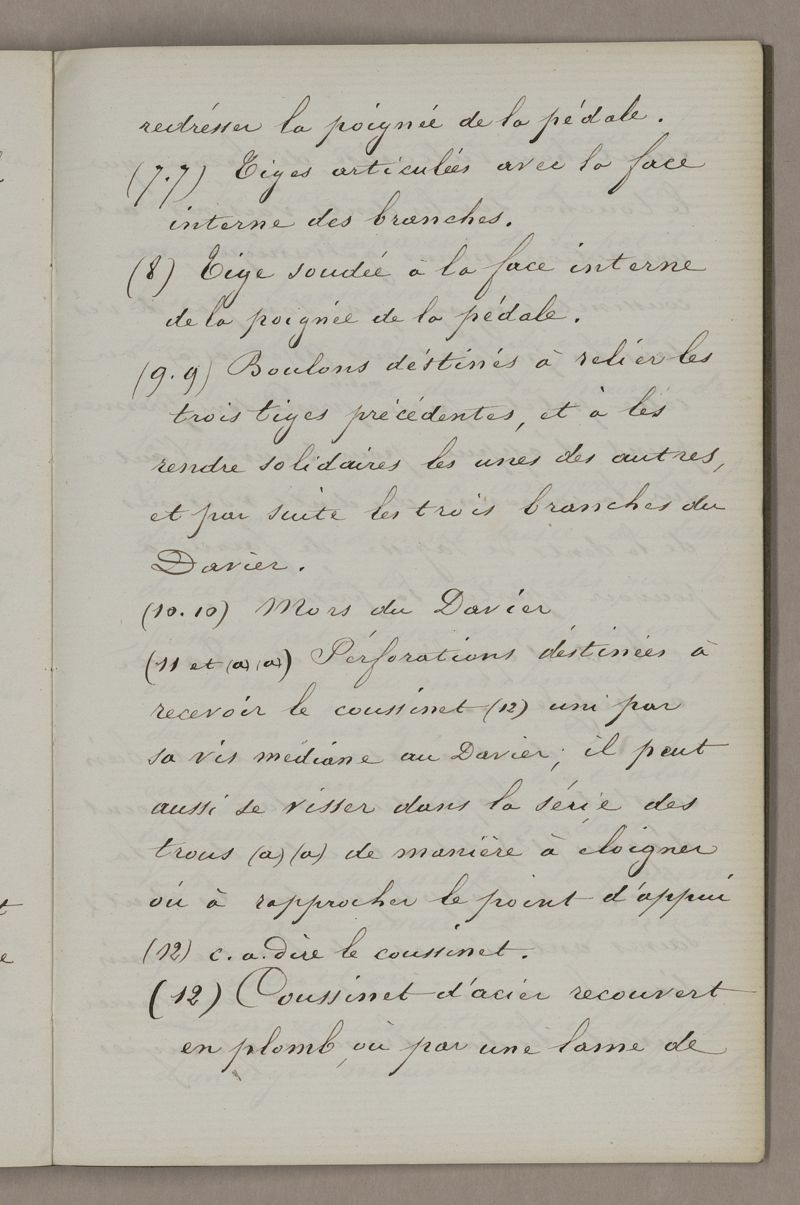 redrésser la poignée de la pédale.
(7.7) Tiges articulées avec la face
interne des branches.
(8) Tige soudée à la face interne
de la poignée de la pédale.
(9.9) Boulons déstinés à relier les
trois tiges précédentes, et à les
rendre solidaires les unes des autres,
et par suite les trois branches du
Davier.
(10.10) Mors du Davier
(11 et (a) (a)) Pérforations déstinées à
recevoir le coussinet (12) uni par
sa vis médiane au Davier; il peut
aussi se visser dans la série des
trous (a) (a) de manière à eloigner
où à rapprocher le point d'appui
(12) c.a.dire le coussinet.
(12) Coussinet d'acier recouvert
en plomb, où par une lame de